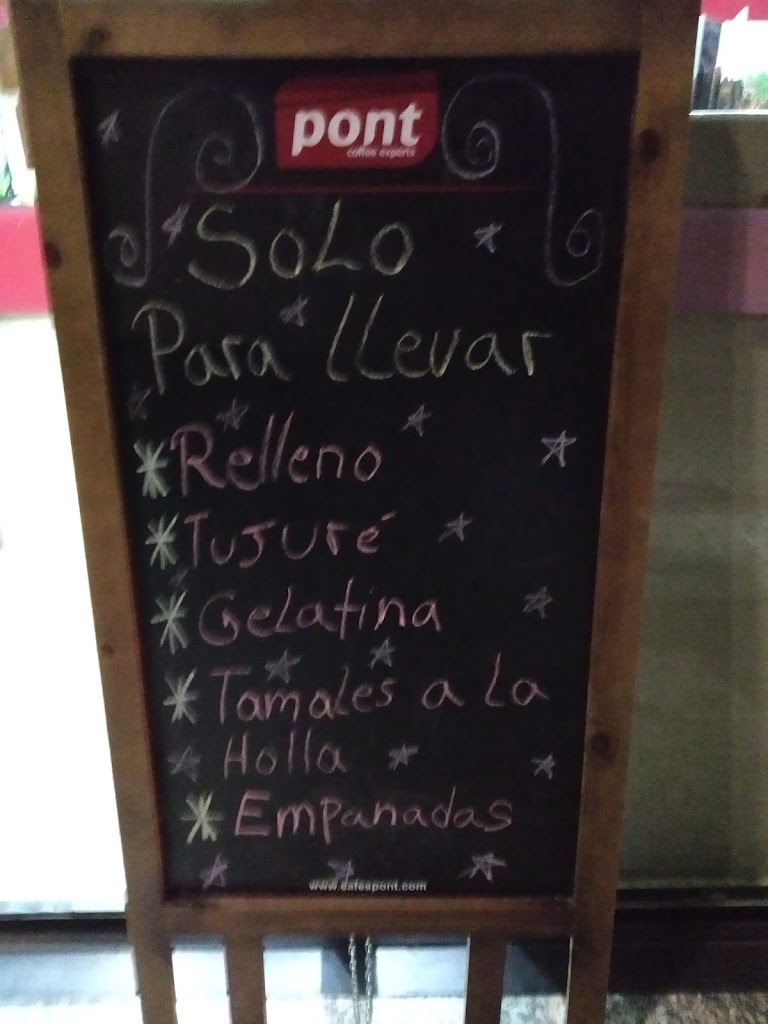 pont
coffee experts
SoLo
Para LLevar
Relleno
Tujuré
GeLatina
Tamales a La
Holla
Empanadas
www.cafespont.com